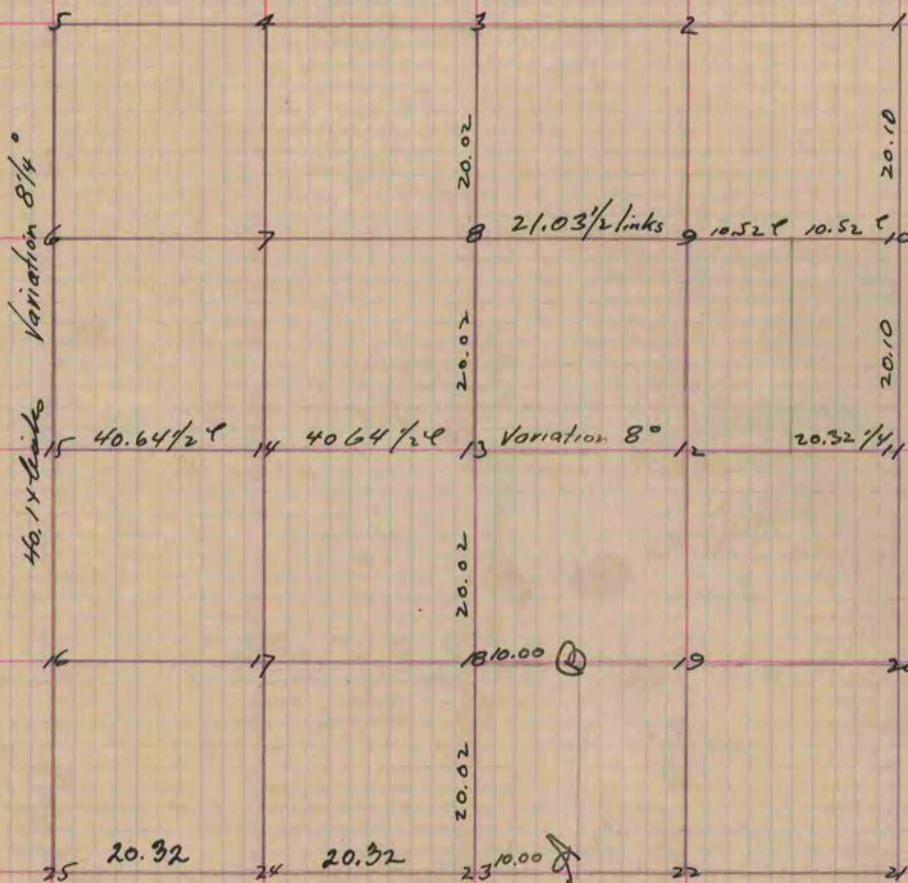 5 4 3 2 1
20.02 20.10
Variation 8 1/4°
6 7 8 21.03 1/2 links 9 10.52 l 10.52 l 10
20.02 20.10
15 40.64 1/2 l 14 40 64 1/2 l 13 Variation 8° 12 20.32 1/4 11
20.02
16 17 18 10.00 19 20
20.02
25 20.32 24 20.32 23 10.00 22 21